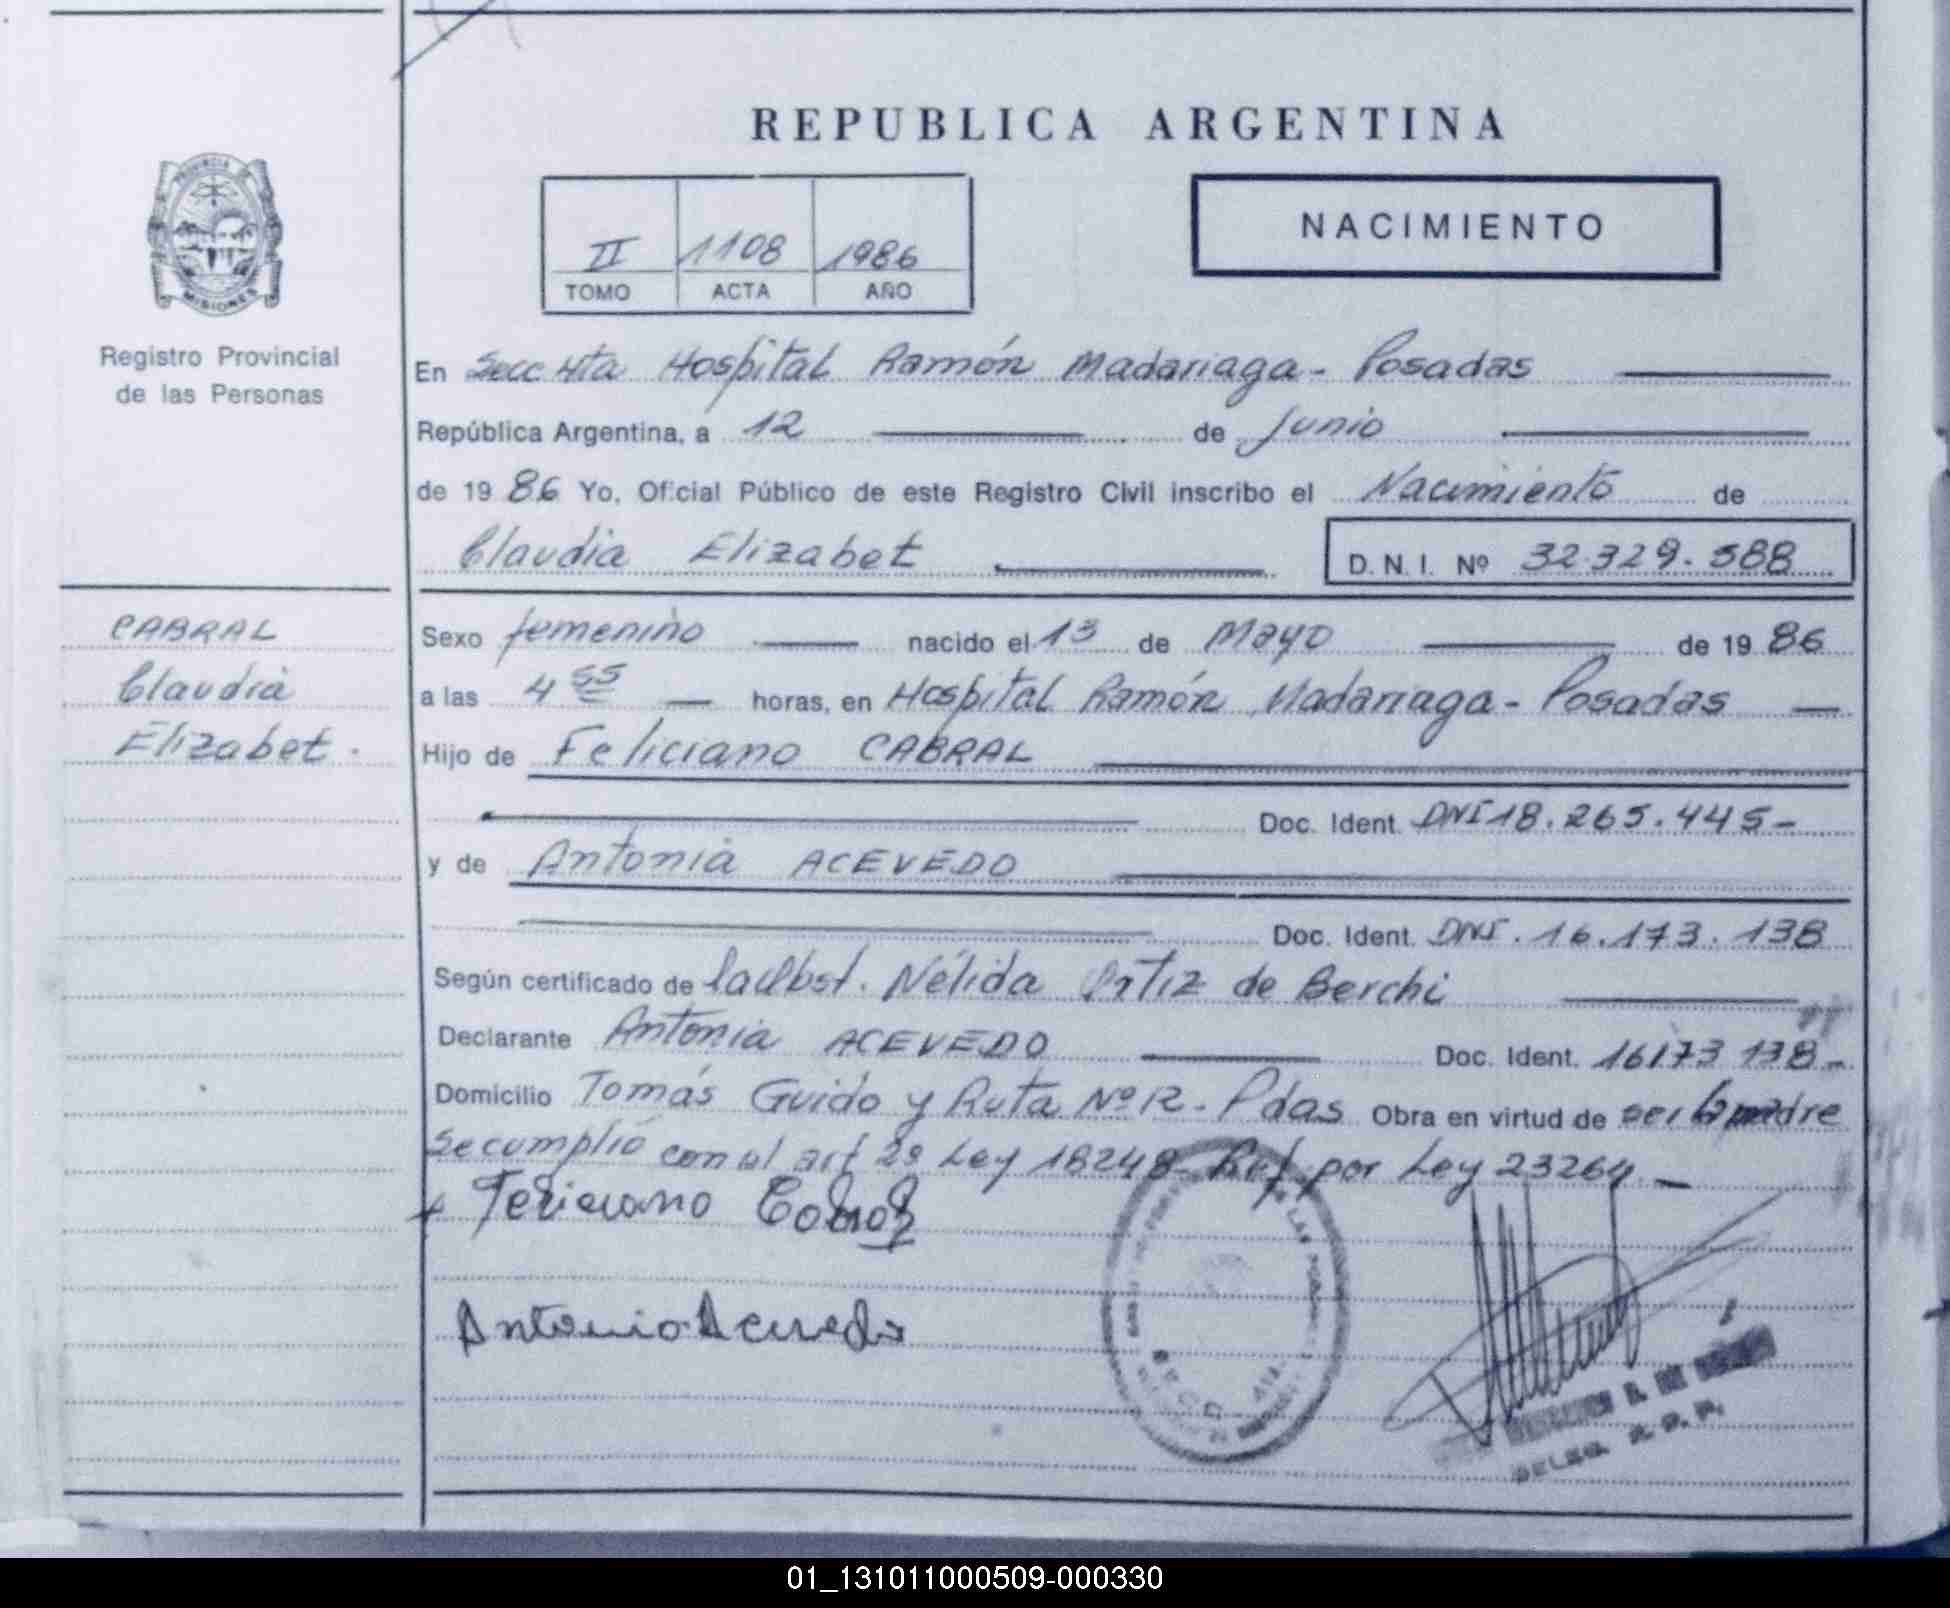 REPUBLICA ARGENTINA
PROVINCIA DE
MISIONES
Registro Provincial
de las Personas
II 1108 1986
TOMO ACTA AÑO
NACIMIENTO
En Secc 4ta Hospital Ramón Madariaga - Posadas
República Argentina, a 12 de Junio
de 1986 Yo, Oficial Público de este Registro Civil inscribo el Nacimiento de
Claudia Elizabet D.N.I. Nº 32.329.588
CABRAL
Claudia
Elizabet.
Sexo femenino nacido el 13 de Mayo de 1986
a las 4 55 horas, en Hospital Ramón Madariaga - Posadas
Hijo de Feliciano CABRAL
Doc. Ident. DNI 18.265.445-
y de Antonia ACEVEDO
Doc. Ident. DNI. 16.173.138
Según certificado de la Obst. Nélida Ortiz de Berchi
Declarante Antonia ACEVEDO Doc. Ident. 16173 138-
Domicilio Tomás Guido y Ruta Nº 12- Pdas Obra en virtud de ser la madre
Se cumplió con el art 2º Ley 18248- Ref por Ley 23264.-
Feliciano Cabral
Antonia Acevedo
DELEG. R. P. P.
01_131011000509-000330